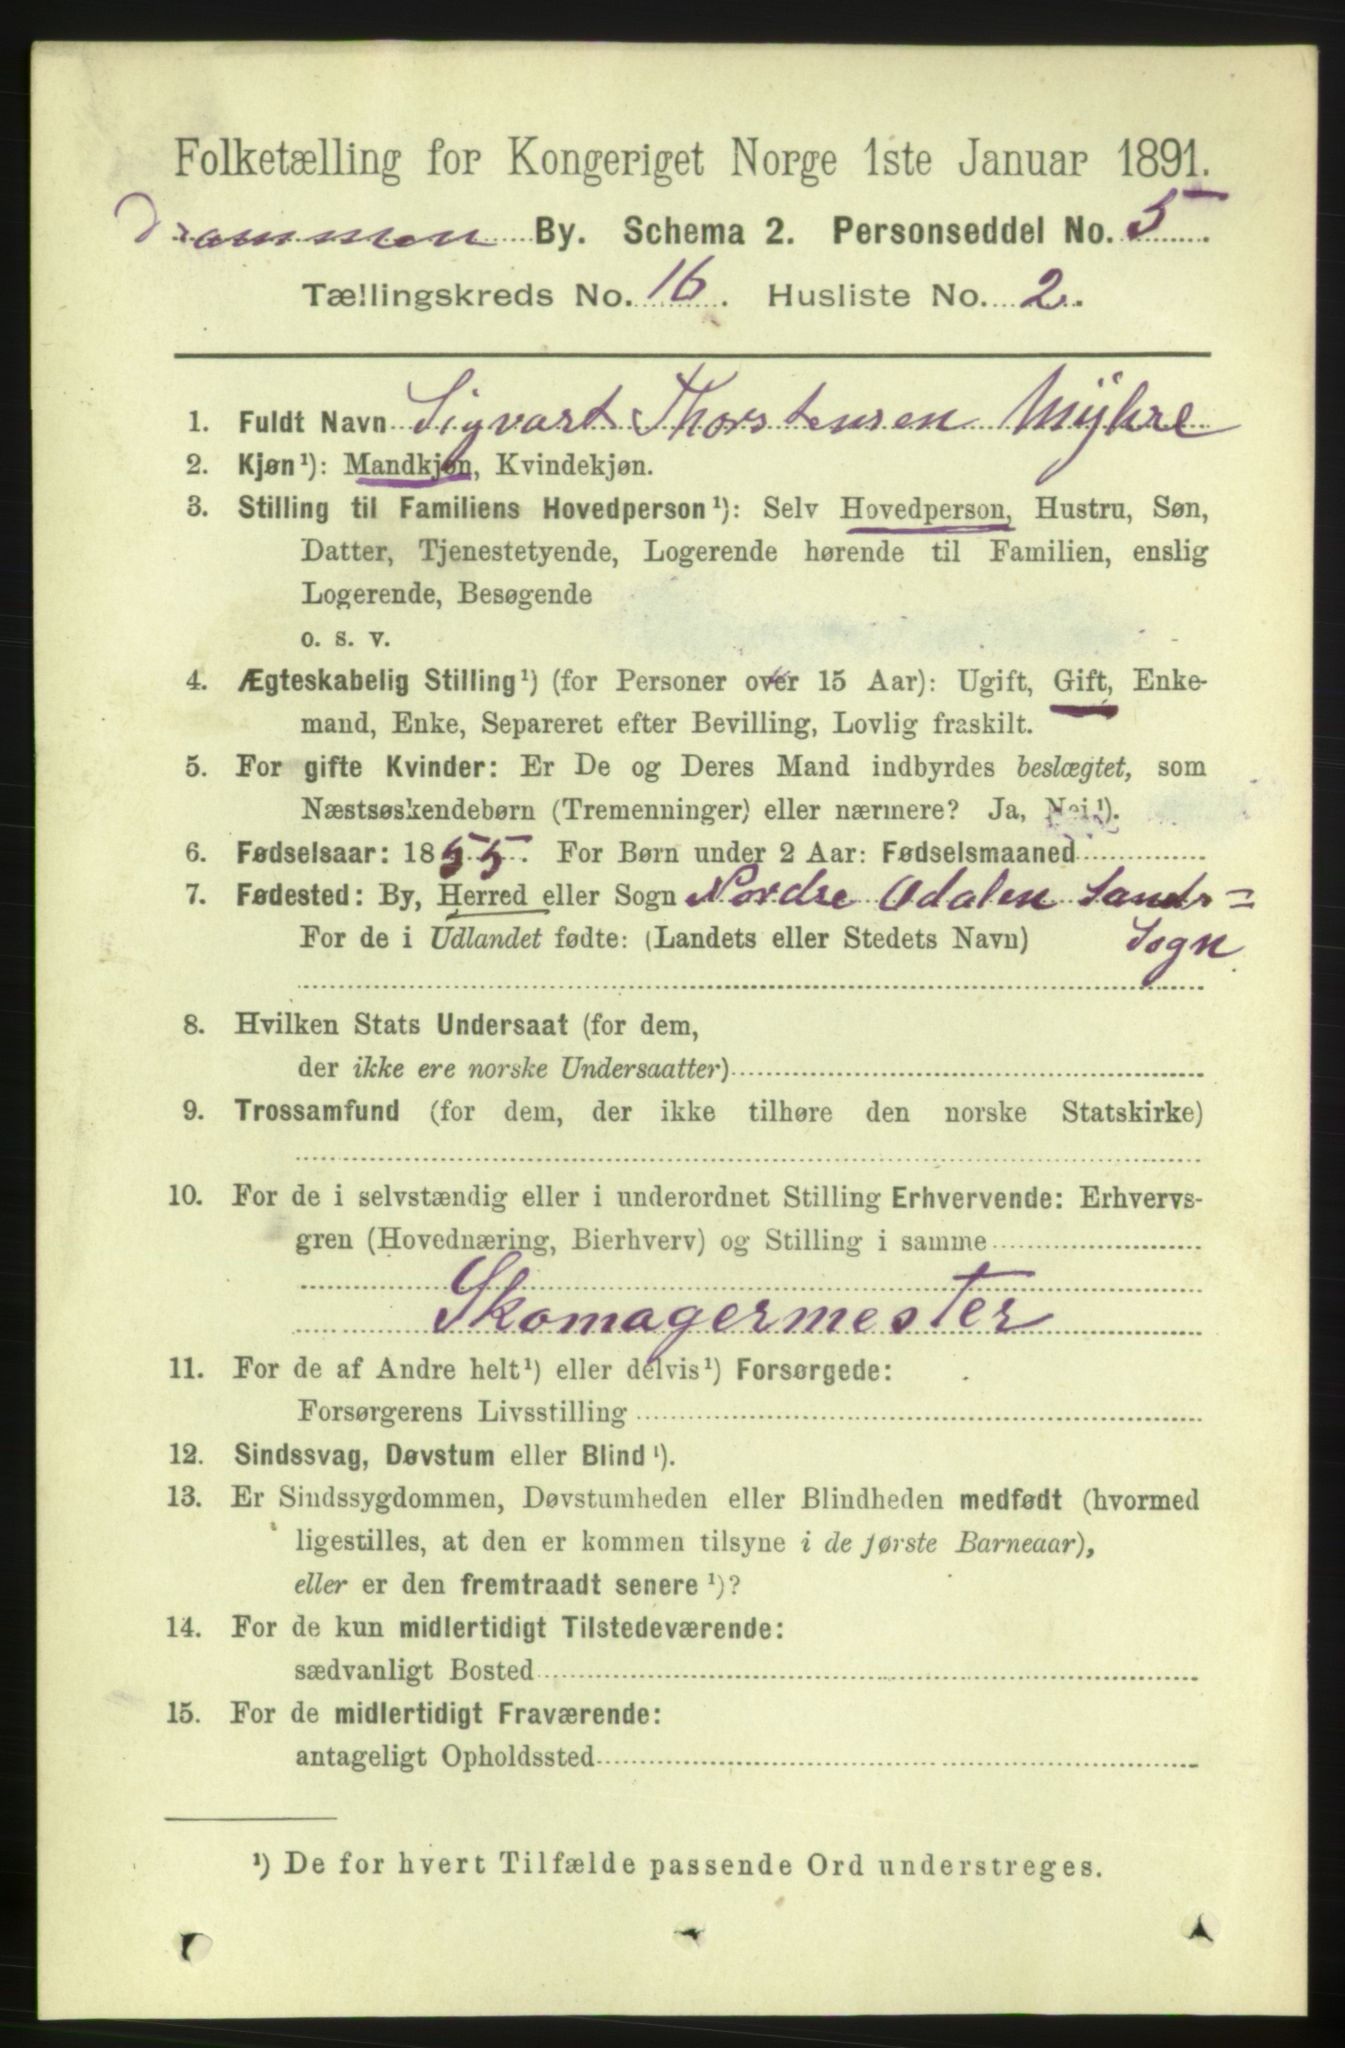 Folketælling for Kongeriget Norge 1ste Januar 1891.
Drammen By. Schema 2. Personseddel No. 5
Tællingskreds No. 16. Husliste No. 2.
1. Fuldt Navn Sigvart Thorstensen Mÿhre
2. Kjøn¹): Mandkjøn, Kvindekjøn.
3. Stilling til Familiens Hovedperson¹): Selv Hovedperson, Hustru, Søn,
Datter, Tjenestetyende, Logerende hørende til Familien, enslig
Logerende, Besøgende
o. s. v.
4. Ægteskabelig Stilling¹) (for Personer over 15 Aar): Ugift, Gift, Enke-
mand, Enke, Separeret efter Bevilling, Lovlig fraskilt.
5. For gifte Kvinder: Er De og Deres Mand indbyrdes beslægtet, som
Næstsøskendebørn (Tremenninger) eller nærmere? Ja, Nei¹).
6. Fødselsaar: 1855. For Børn under 2 Aar: Fødselsmaaned
7. Fødested: By, Herred eller Sogn Nordre Odalen Sands=
For de i Udlandet fødte: (Landets eller Stedets Navn) Sogn
8. Hvilken Stats Undersaat (for dem,
der ikke ere norske Undersaatter)
9. Trossamfund (for dem, der ikke tilhøre den norske Statskirke)
10. For de i selvstændig eller i underordnet Stilling Erhvervende: Erhvervs-
gren (Hovednæring, Bierhverv) og Stilling i samme
Skomagermester
11. For de af Andre helt¹) eller delvis¹) Forsørgede:
Forsørgerens Livsstilling
12. Sindssvag, Døvstum eller Blind¹).
13. Er Sindssygdommen, Døvstumheden eller Blindheden medfødt (hvormed
ligestilles, at den er kommen tilsyne i de første Barneaar),
eller er den fremtraadt senere¹)?
14. For de kun midlertidigt Tilstedeværende:
sædvanligt Bosted
15. For de midlertidigt Fraværende:
antageligt Opholdssted
¹) De for hvert Tilfælde passende Ord understreges.